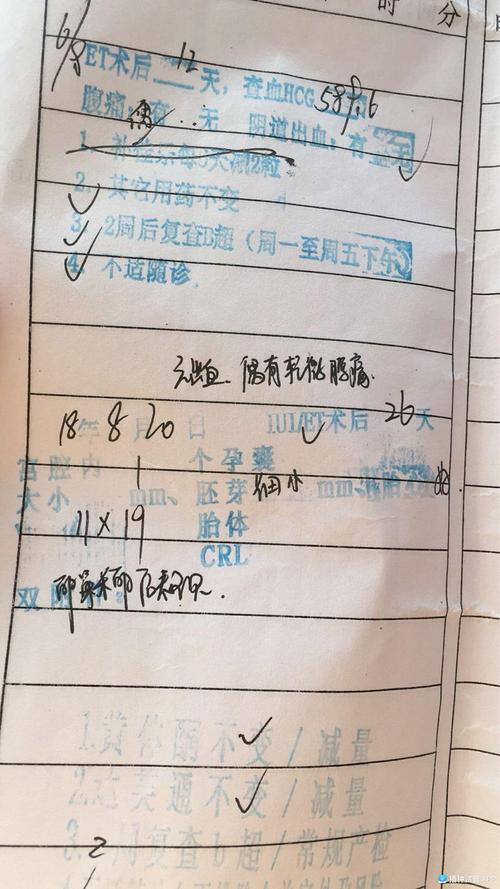 时 分
6/8
ET术后 12 天，查血HCG 589.16
腹痛：有 无 阴道出血：有 无
1. 每 天 2粒
2. 其它用药不变
3. 2周后复查B超（周一至周五下午）
4. 个适随诊
无出血、偶有轻微腹痛
18年 8月 20日 IUI/ET术后 26天
宫腔内 1 个孕囊
大小 mm、胚芽 细小 mm、
11×19 胎体
CRL
双
1.黄体酮不变/减量
2.达芙通不变/减量
3. 2周复查b超/常规产检